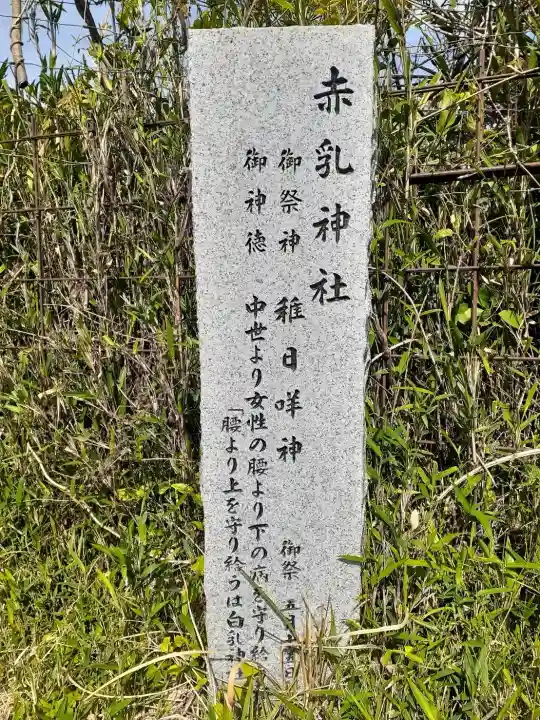 赤乳神社
御祭神 稚日咩神 御祭 五月
御神徳 中世より女性の腰より下の病を守り給
「腰より上を守り給うは白乳神